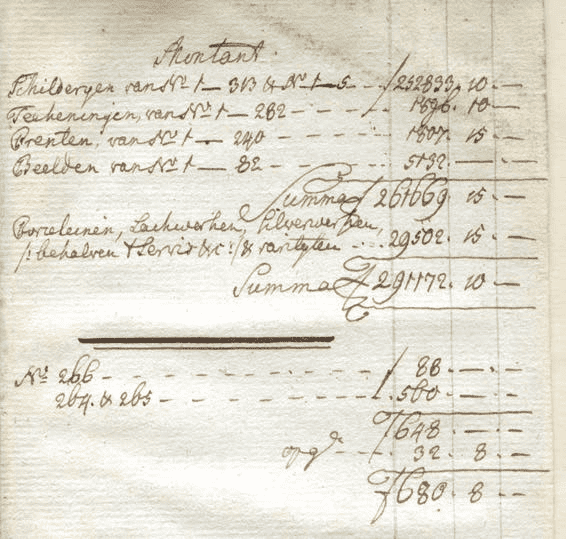 Montant.
Schilderyen van No 1 — 313 & No 1 — 5 - - - ƒ 252833. 10 . —
Teekeningen, van No 1 — 282 - - - - - 1896. 10 —
Prenten, van No 1 — 240 - - - - - 1807. 15 —
Beelden van No 1 — 82 - - - - - 5132. — . —
Summa ƒ 261669. 15 —
Porceleinen, Lackwerken, Silverwerken,
/: behalven t Servis &c: /& rarityten ... 29502. 15 —
Summa ƒ 291172. 10 —
No 266 - - - - - - - - - ƒ 88 . — . —
264. & 265 - - - - - - - - 560 . — . —
ƒ 648 . — . —
opgd. - - - 32. 8 . —
ƒ 680. 8 . —